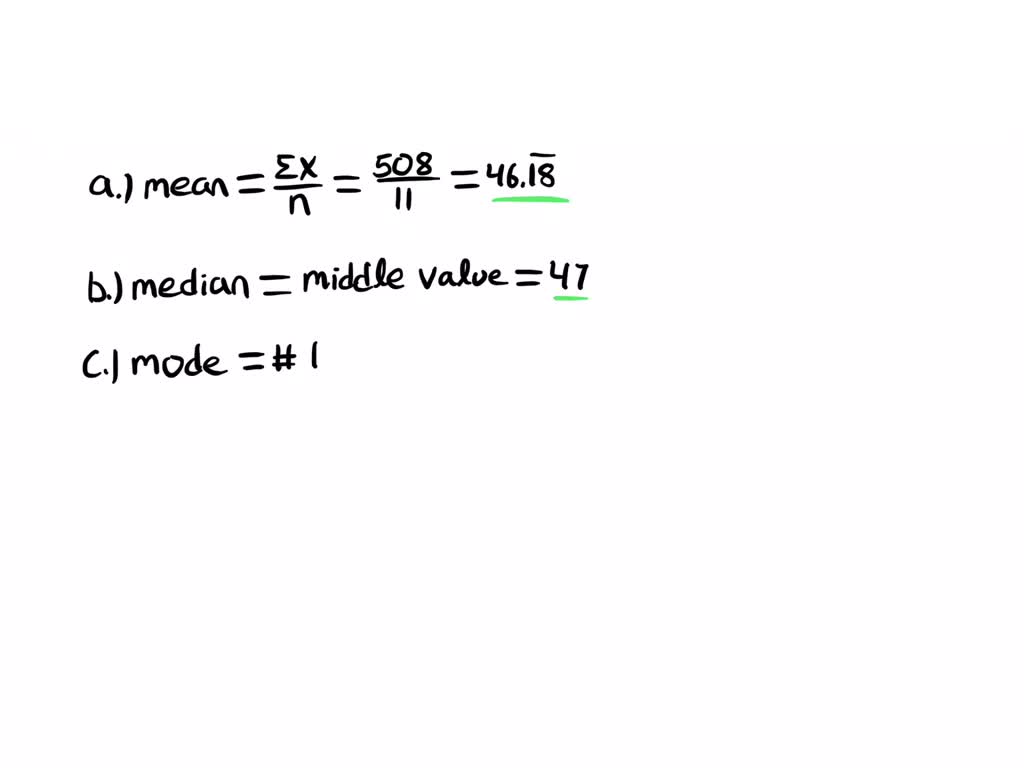 a.) mean = Σx/n = 508/11 = 46.1̅8̅
b.) median = middle value = 47
c.) mode = # 1